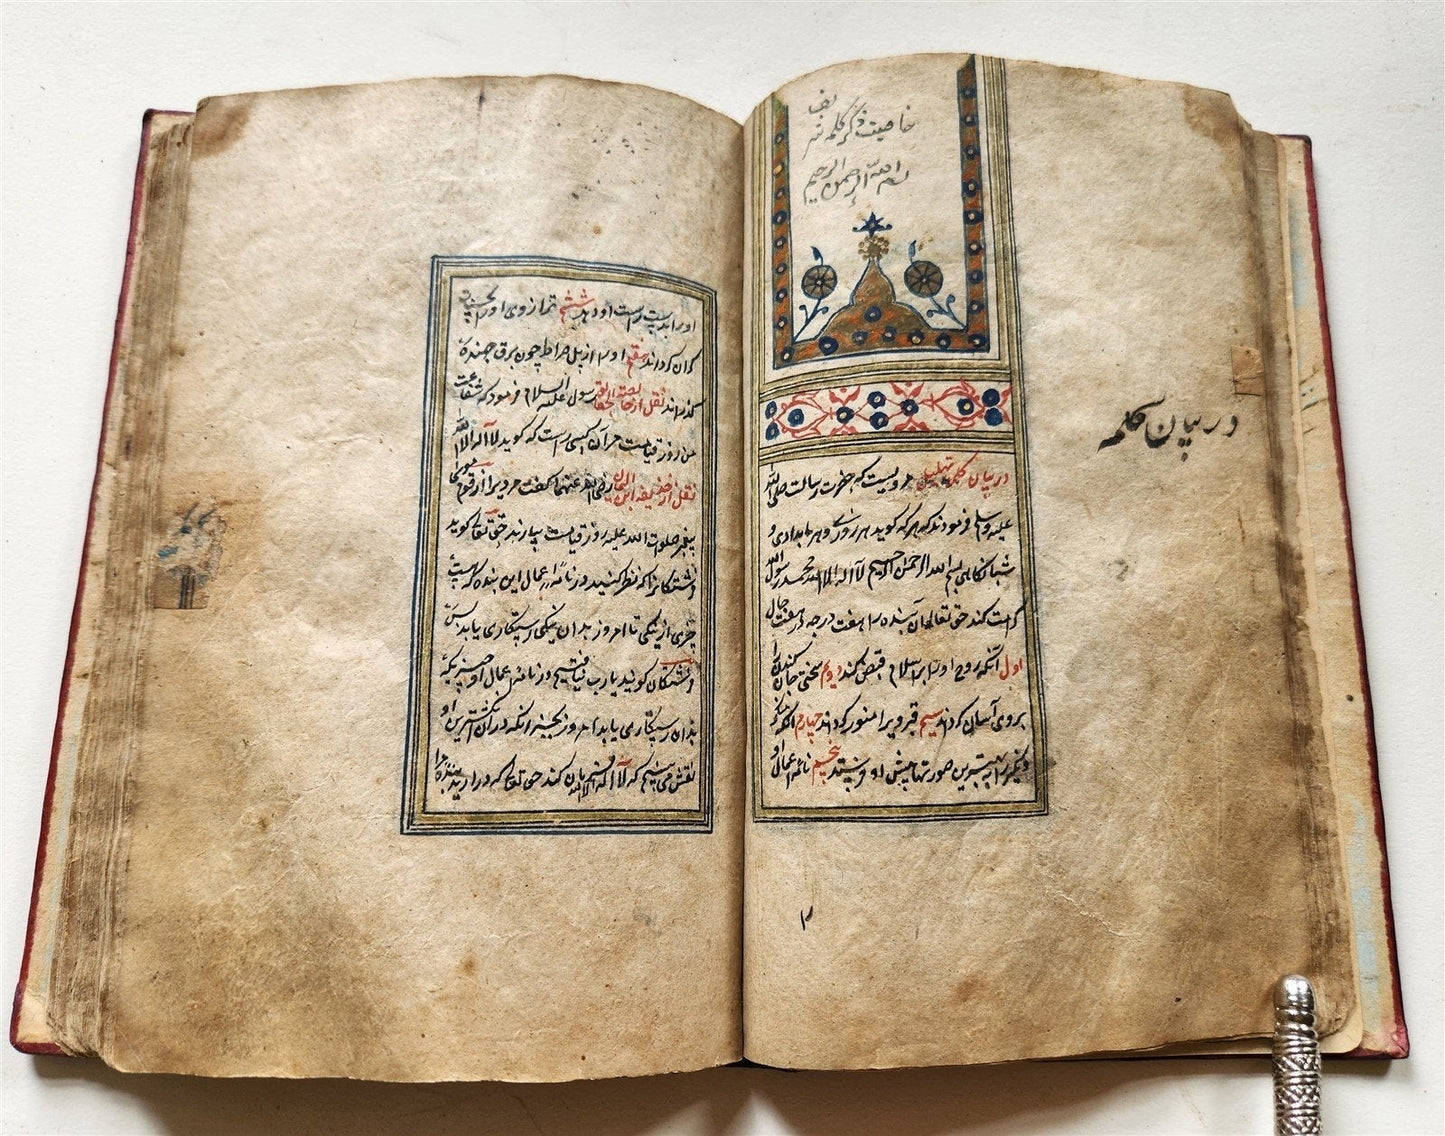 خاصیت ذکر کلمه شریف
بسم الله الرحمن الرحیم
در بیان کلمه
در بیان کلمه تهلیل مرویست که حضرت رسالت صلی الله
علیه و سلم فرمودند که هر که کوید هر روزی و هر بامدادی و
شبانکاهی بسم الله الرحمن الرحیم لا اله الا الله محمد رسول الله
کرامت کند حق تعالی آن بنده را هفت درجه در هفت حال
اول آنکه روح او را بر اسلام قبض کند دویم سختی جان کندن را
بروی آسان کرداند سیم قبر ویرا منور کرداند چهارم منکر
و نکیر را به بهترین صورتها پیش او فرستد پنجم نامه اعمال او
۲
او را بدست راست او دهد ششم ترازوی او را
کران کرداند هفتم او را از پل صراط چون برق جهنده
کذراند نقل از رسول علیه السلام فرمود که شفاعت
من روز قیامت مر آن کسی است که کوید لا اله الا الله
نقل از حذیفه ابن الیمان رضی الله عنهما کفت مردیرا از قوم موسی
پیغمبر صلوات الله علیه روز قیامت بیارند حق تعالی کوید
فرشتکانرا که نظر کنید در نامه اعمال این بنده که هست
چیزی از نیکی تا امروز بدان نیکی رستکاری یابد پس
فرشتکان کویند یارب نیافتیم در نامه اعمال او چیزیکه
بدان رستکاری یابد امروز بجز آنکه در انکشترین او
نقش می بینیم که لا اله الا الله فرمان کند حق تعالی که درارید بنده مرا